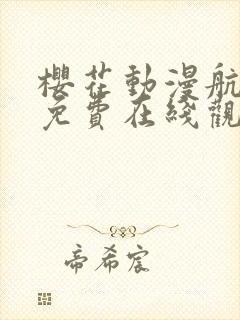 櫻花動漫航
免費在綫觀
帝希宸